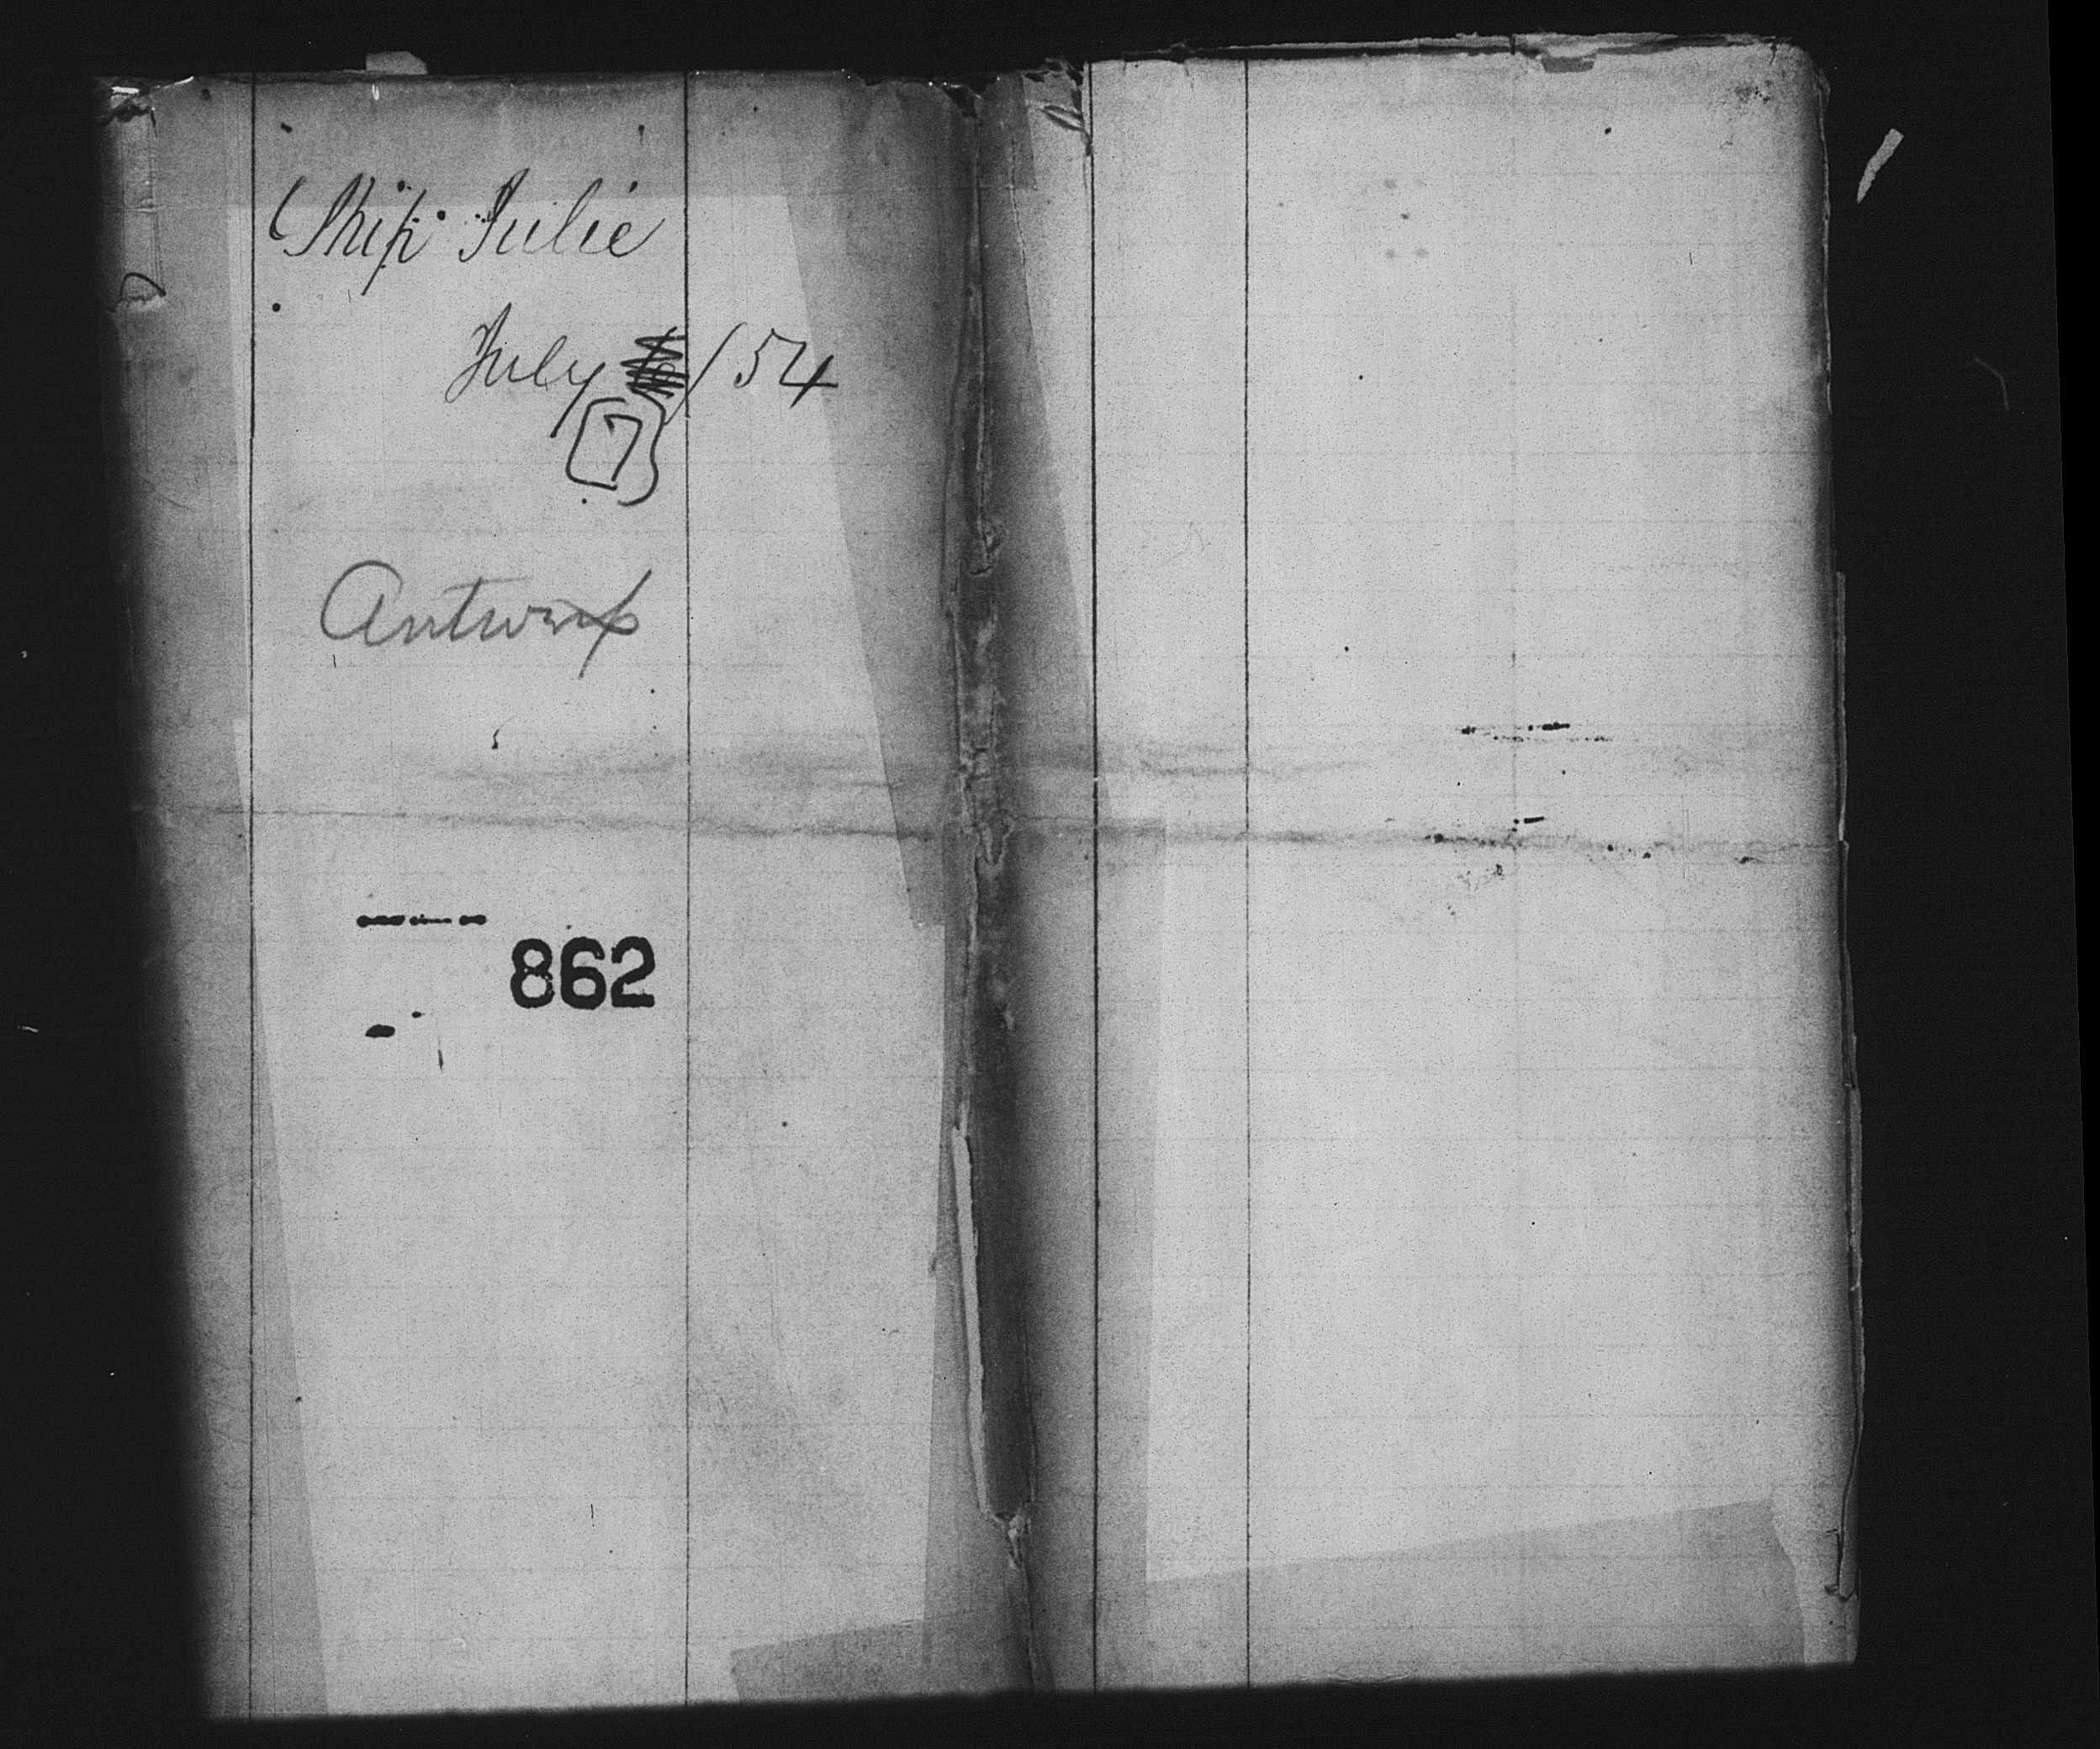 Ship Julie
July /54
7
Antwerp
862